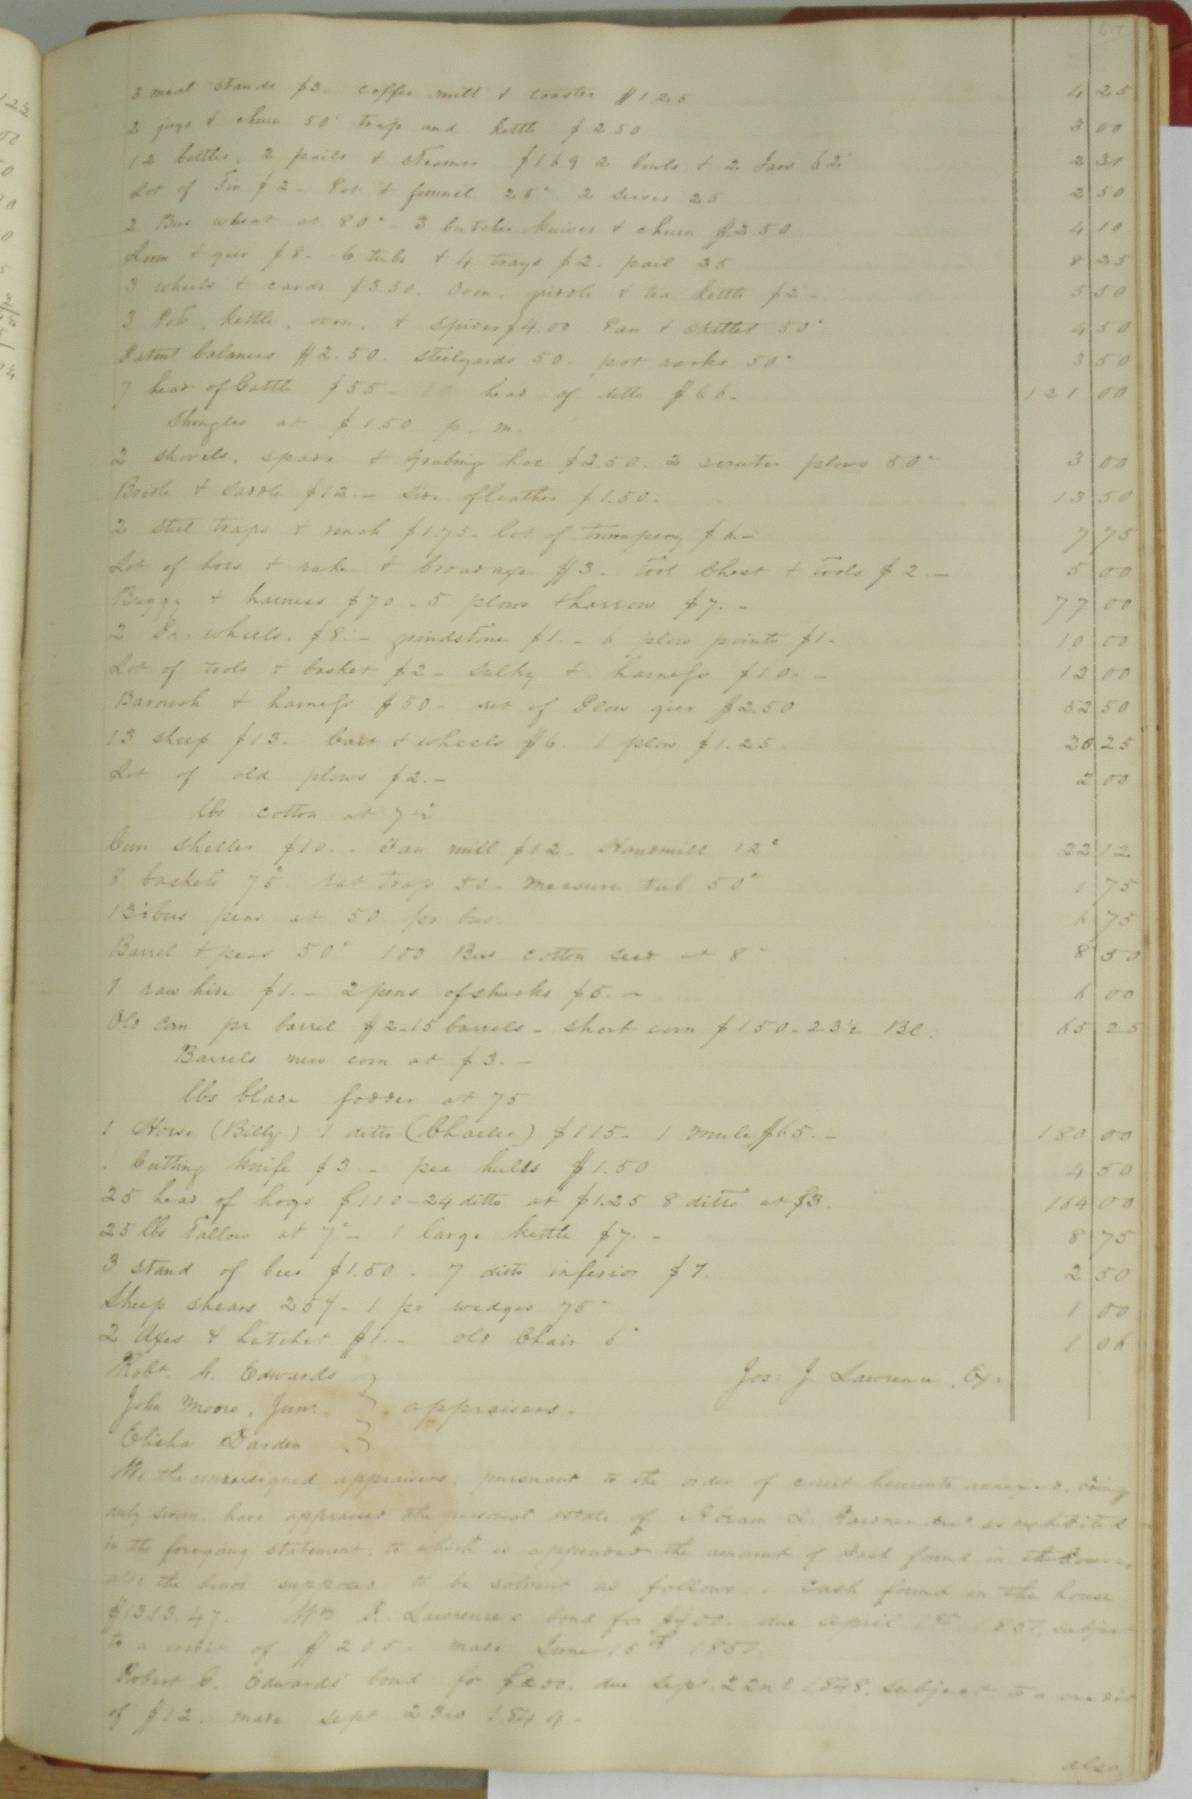 3 meat stands $3. coffee mill & toaster $1.25 4 25
2 jugs & churn 50c trap and kettle $2.50 3 00
12 bottles, 2 pails & steamer $1.69 2 bowls & 2 Jars 62c 2 31
Lot of Tin $2 - Pot & funnel 25c 2 sieves 25 2 50
2 Bus wheat at 80c - 3 butcher knives & churn $2.50 4 10
Loom & gier $8 - 6 tubs & 4 trays $2. pail 25 8 25
3 wheels & cards $3.50. Oven, griddle & tea kettle $2 - 5 50
3 Pots, kettle, oven, & spider $4.00 Pan & skillet 50c 4 50
Patent balances $2.50. Steelyards 50. pot racks 50c 3 50
7 head of Cattle $55 - head of ditto $66 - 121 00
Shingles at $1.50 p. m.
2 shovels, spade & grubing hoe $2.50. 2 scouter plows 50c 3 00
Bridle & saddle $12. - side of leather $1.50. 13 50
2 steel traps & $1.75 - Lot of trumpery $6 - 7 75
Lot of hoes & rake & broad axe $3. Tool Chest & Tools $2. - 5 00
Buggy & harness $70 - 5 plows & harrow $7. - 77 00
2 Pa. wheels. $8. - grindstone $1. - 6 plow points $1 - 10 00
Lot of tools & basket $2 - sulky & harness $10. - 12 00
Barouch & harness $50 - set of Plow gier $2.50 52 50
13 sheep $13. Cart & wheels $6. 1 plow $1.25 20 25
Lot of old plows $2. - 2 00
lbs cotton at 7½
Corn sheller $10. - Fan mill $12 - Handmill 12c 22 12
8 baskets 75c rat trap 50 - measure tub 50c 1 75
13½ bus peas at 50 pr bus. 6 75
Barrel & peas 50c 100 Bus cotton seed at 8c 8 50
1 raw hide $1. - 2 pens of shucks $5. - 6 00
Old corn pr barrel $2 - 15 barrels - short corn $1.50 - 23½ Bl. 65 25
Barrels new corn at $3. -
lbs blade fodder at 75
1 Horse (Billy) 1 ditto (Charles) $115 - 1 mule $65. - 180 00
1 Cutting knife $3 - pea hulls $1.50 4 50
25 head of hogs $110 - 24 ditto at $1.25 8 ditto at $3. 164 00
25 lbs Tallow at 7c - 1 large kettle $7. - 8 75
3 stand of bees $1.50 - 7 ditto inferior $7. 2 50
Sheep shears 25c - 1 pr wedges 75c 1 00
2 Axes & hatchet $1. - old Chair 6c 1 06
Robt. C. Edwards
Jos. J. Lawrence, Ex.
John Moore, Junr. appraisers.
Elisha Darden
We the undersigned appraisers, pursuant to the order of court hereunto annexed, being
duly sworn have appraised the personal estate of Abram L. decd as exhibited
in the foregoing statement, to which is appended the amount of Cash found in the house
also the bonds supposed to be solvent as follows. Cash found in the house
$1313.47. Wm R. Lawrence's bond for $400. due April 1st 1857, subject
to a credit of $205. made June 15th 1857.
Robert C. Edwards bond for $200. due Sept 22nd 1848, subject to a credit
of $12. made Sept 23rd 1849.
also